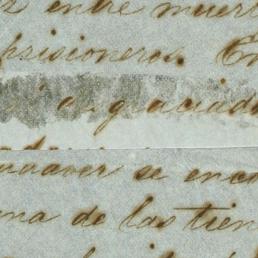 entre muert
prisioneros. En
graciada
cadaver se enco
una de las tien